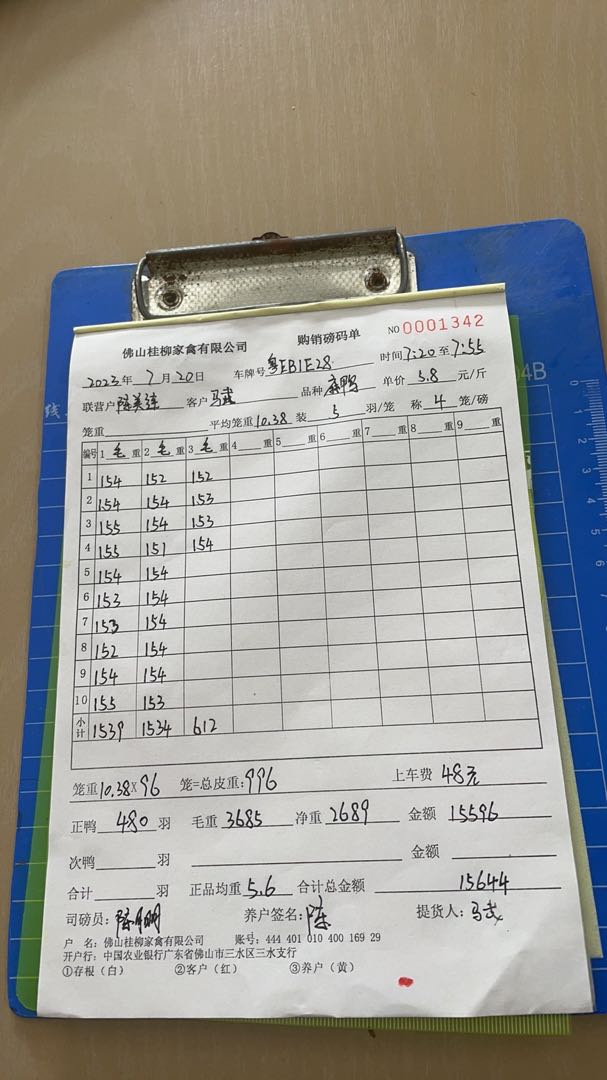 佛山桂柳家禽有限公司 购销磅码单 NO 0001342
2023年 7月 20日 车牌号 粤EB1E28 时间 7:20 至 7:55
联营户 陈美连 客户 马武 品种 麻鸭 单价 5.8 元/斤
笼重 平均笼重 10.38 装 5 羽/笼 称 4 笼/磅
编号 1 毛 重 2 毛 重 3 毛 重 4 重 5 重 6 重 7 重 8 重 9 重
1 154 152 152
2 154 154 153
3 155 154 153
4 155 151 154
5 154 154
6 153 154
7 153 154
8 152 154
9 154 154
10 155 153
小计 1539 1534 612
笼重 10.38 × 96 笼=总皮重: 996 上车费 48元
正鸭 480 羽 毛重 3685 净重 2689 金额 15596
次鸭 羽 金额
合计 羽 正品均重 5.6 合计总金额 15644
司磅员: 养户签名: 陈 提货人: 马武
户 名: 佛山桂柳家禽有限公司 账号: 444 401 010 400 169 29
开户行: 中国农业银行广东省佛山市三水区三水支行
①存根（白） ②客户（红） ③养户（黄）
04B
0 1 2 3 4 5 6